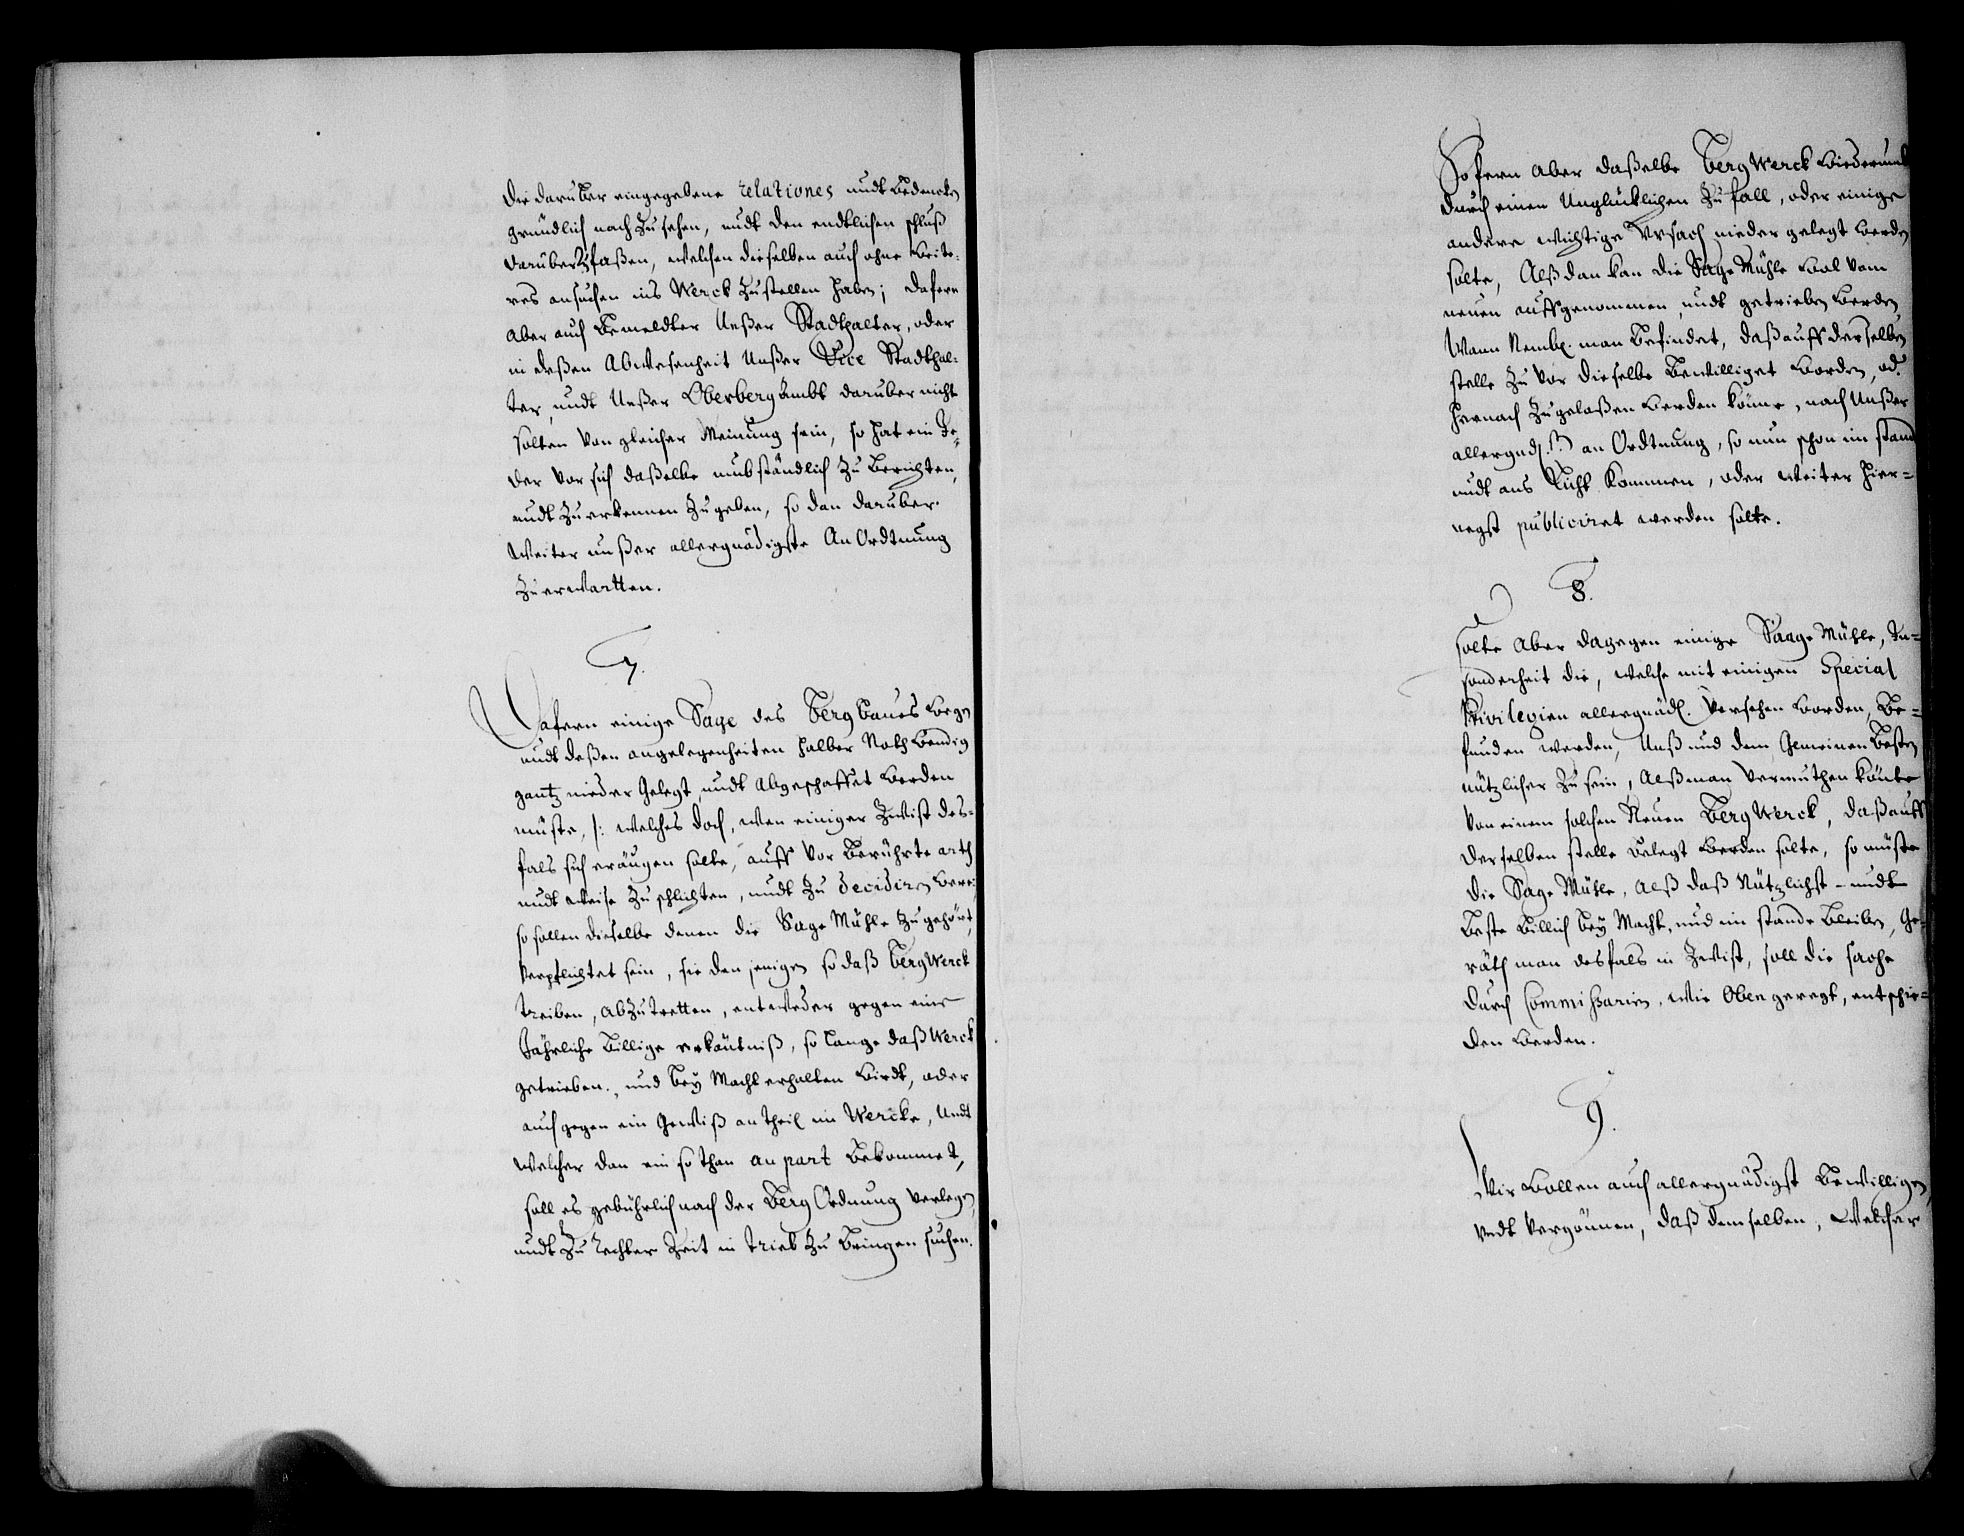 die darüber eingegebene relationes undt bedencken
gründlich nach Zu sehen, undt den endtlichen schluß
darüber Zfaßen, welchen dieselben auch ohne weite-
res ansuchen ins Werck Zustellen haben; dafern
aber auch bemeldter Unßer Stadthalter, oder
in deßen Abwesenheit Unßer Vice Stadthal-
ter, undt Unßer Oberberg Ambt darüber nicht
solten von gleicher Meinung sein, so hat ein Je-
der vor sich daßelbe umbständlich Zu berichten,
undt Zuerkennen Zugeben, so dan darüber
Weiter unßer allergnädigste An Ordtnung
Zuerwartten.
7.
Dafern einige Sage des Berg baues wegen
undt deßen angelegenheiten halber Nothwendig
gantz nieder Gelegt, undt Abgeschaffet werden
müste, /: welches doch, wen einiger Zwist des-
fals sich eräugen solte, auff vor berührte arth
undt weise Zu schlichten, undt Zu decidiren were
so sollen dieselbe denen die Sage Mühle Zugehört,
verpflichtet sein, sie den jenigen so daß BergWerck
treiben, abZutretten, entweder gegen eine
Jährliche billige erkäntniß, so lange daß Werck
getrieben, und bey Macht erhalten wirdt, oder
auch gegen ein Gewiß antheil im Wercke, Undt
Welcher dan ein so than an part bekommet,
soll es gebührlich nach der Berg Ordnung verlegen,
undt Zu rechter Zeit in trieb Zu bringen suchen.
Sofern aber daßelbe BergWerck wiederumb
durch einen Unglücklichen Zufall, oder einige
andere wichtige Ursach nieder gelegt werden
solte, Alßdan kan die Sage Mühle wol vom
neuen auffgenommen, undt getrieben werden
Wann Nembl. man befindet, daß auff derselben
stelle Zu vor dieselbe bewilliget worden, od.
hernach Zugelaßen werden könne, nach Unßer
allergndst. an Ordtnung, so nun schon im stand
undt ans Licht Kommen, oder weiter hier-
negst publiciret werden solte.
8.
solte Aber dagegen einige Saage Mühle, In-
sonderheit die, welche mit einigen Special
Privilegien allergnädl. versehen worden, be-
funden werden, Unß und dem Gemeinen besten
nützlicher Zu sein, Alß man vermuthen könte
von einem solchen Neuen BergWerck, daß auff
derselben stelle belegt werden solte, so müste
die Sage Mühle, Alß daß Nützlichst- undt
beste billich bey Macht, und im stande bleiben, Ge-
räth man desfals in Zwist, soll die sache
durch Commißarien, wie Oben geregt, entschie-
den werden.
9.
Wir wollen auch allergnädigst bewilligen
undt vergönnen, daß demselben, Welcher